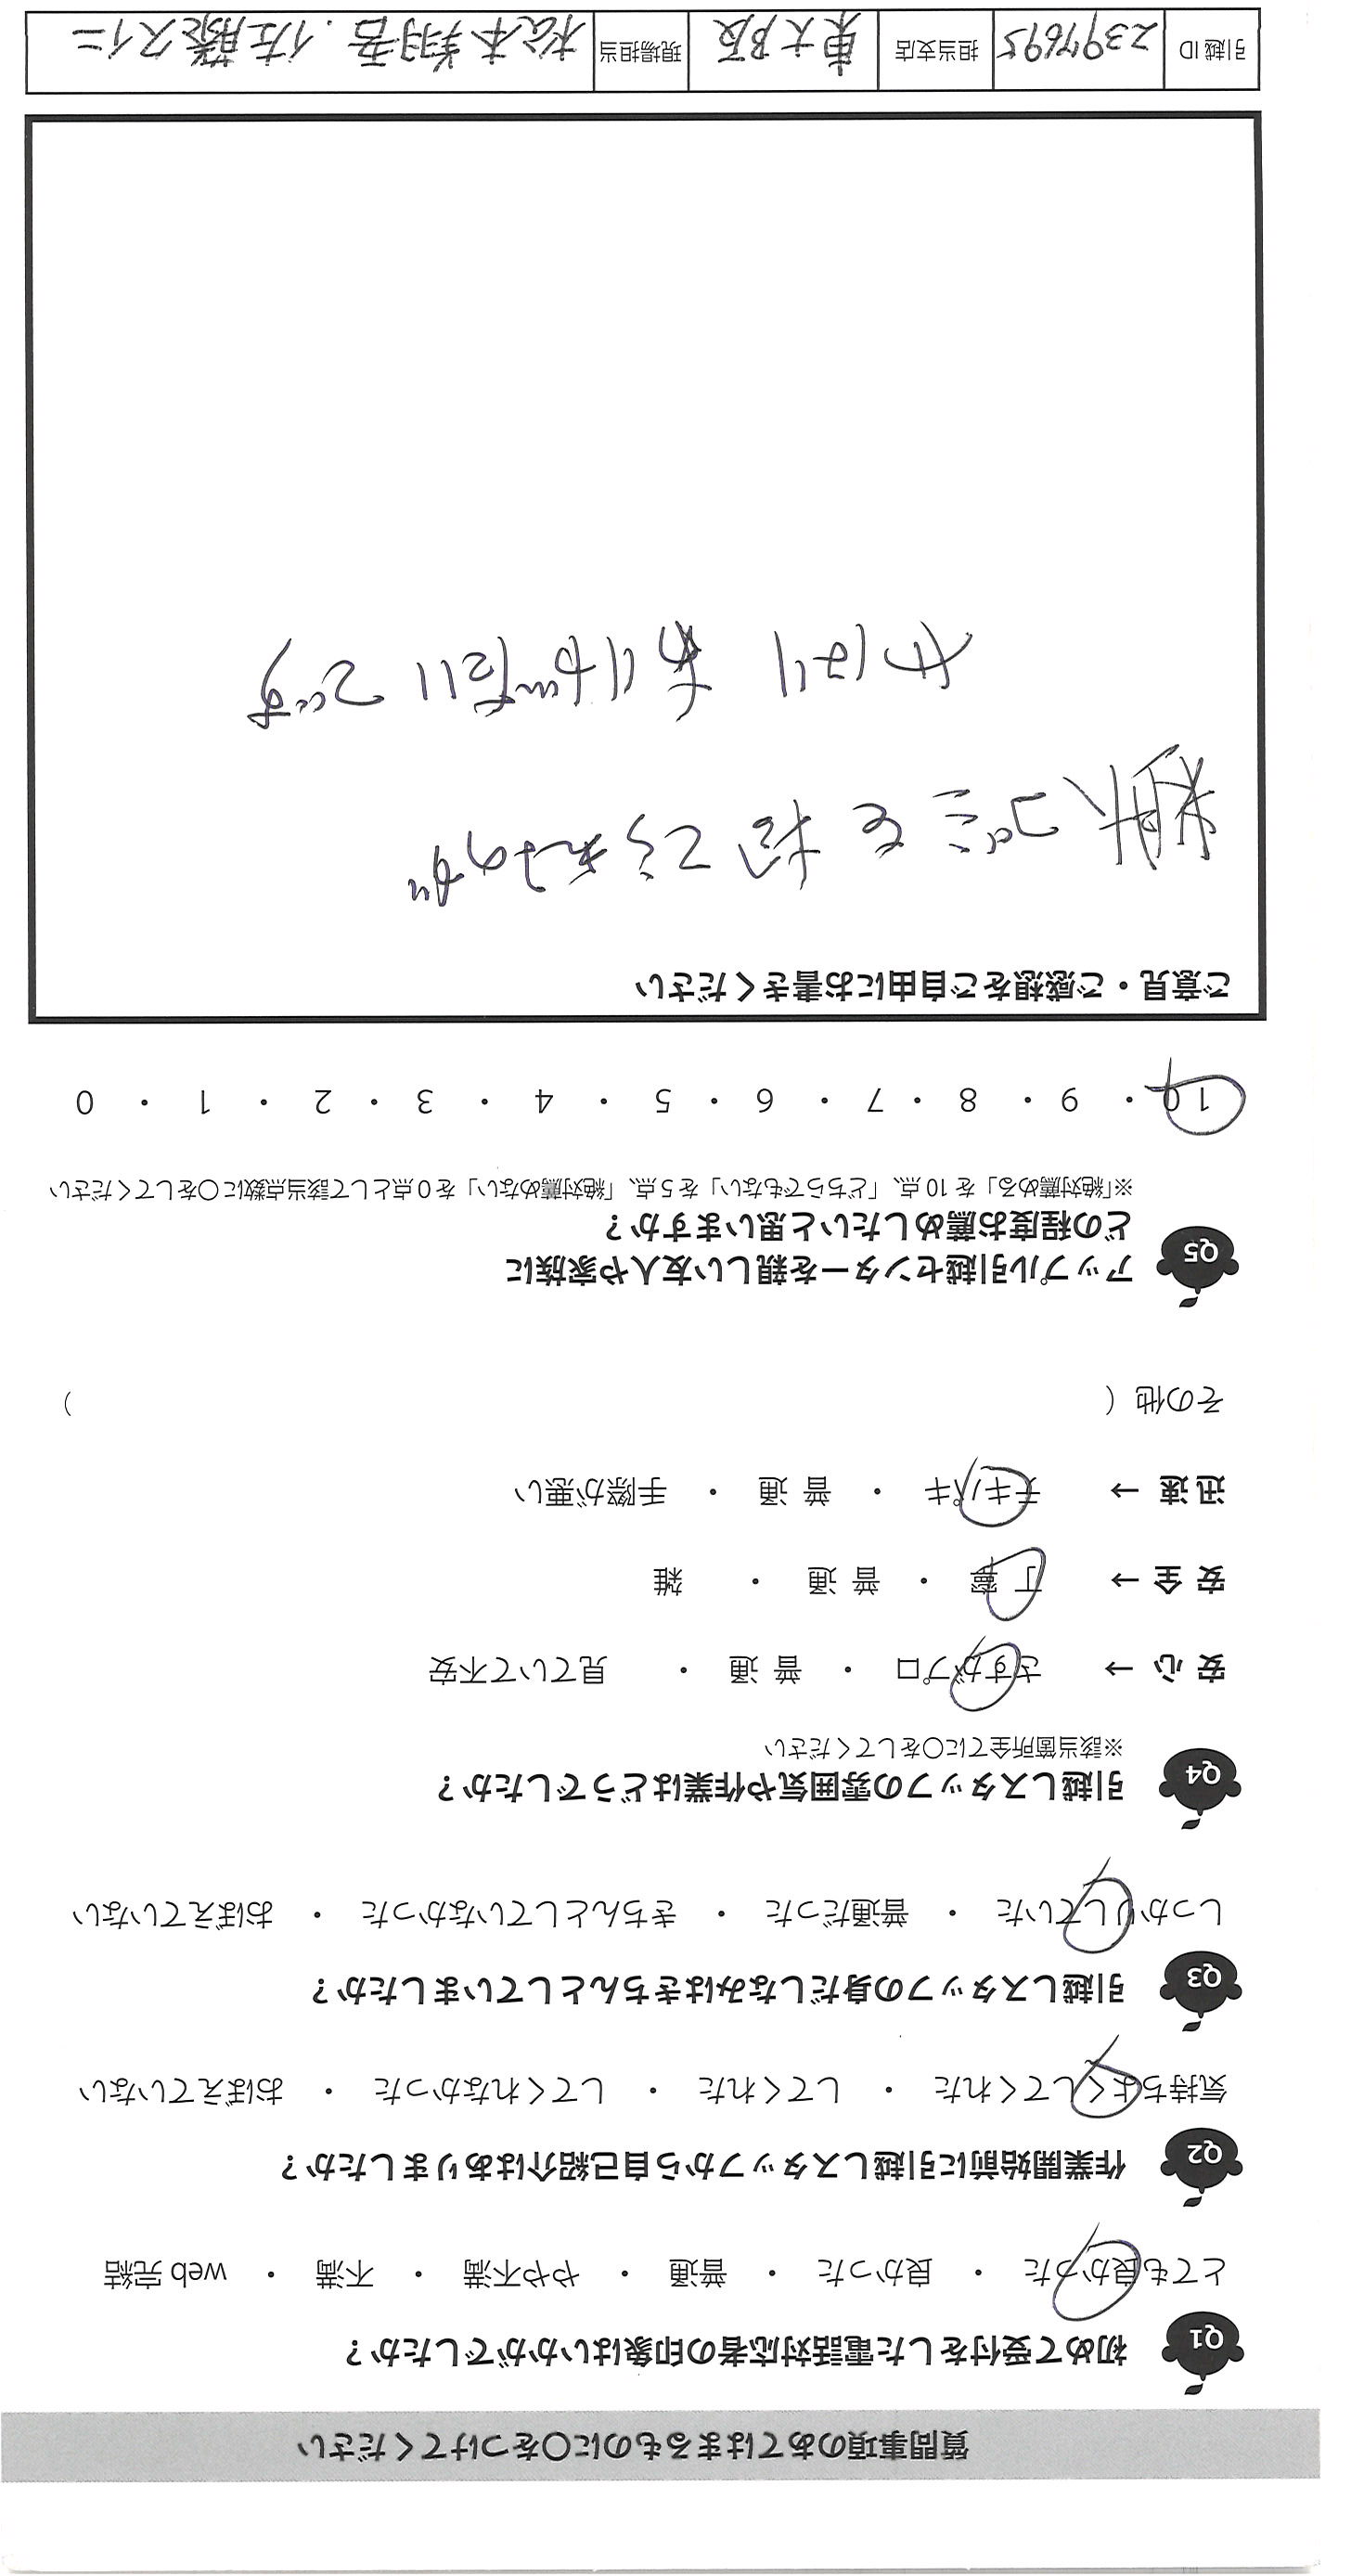 質問事項のあてはまるものに〇をつけてください
Q1 初めて受付をした電話対応者の印象はいかがでしたか？
とても良かった ・ 良かった ・ 普通 ・ やや不満 ・ 不満 ・ web 完結
Q2 作業開始前に引越しスタッフから自己紹介はありましたか？
気持ちよくしてくれた ・ してくれた ・ してくれなかった ・ おぼえていない
Q3 引越しスタッフの身だしなみはきちんとしていましたか？
しっかりしていた ・ 普通だった ・ きちんとしていなかった ・ おぼえていない
Q4 引越しスタッフの雰囲気や作業はどうでしたか？
※該当箇所全てに〇をしてください
安 心 → さすがプロ ・ 普 通 ・ 見ていて不安
安 全 → 丁 寧 ・ 普 通 ・ 雑
迅 速 → テキパキ ・ 普 通 ・ 手際が悪い
その他（ ）
Q5 アップル引越センターを親しい友人や家族に
どの程度お薦めしたいと思いますか？
※「絶対薦める」を 10 点、「どちらでもない」を 5 点、「絶対薦めない」を 0 点として該当点数に〇をしてください
10 ・ 9 ・ 8 ・ 7 ・ 6 ・ 5 ・ 4 ・ 3 ・ 2 ・ 1 ・ 0
ご意見・ご感想をご自由にお書きください
引越 ID 2397695 担当支店 東大阪 現場担当 松本翔吾．佐藤久仁